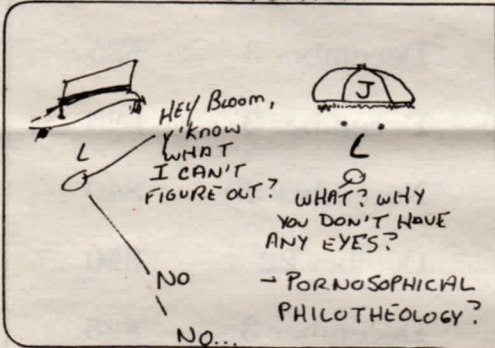 HEY BLOOM,
Y'KNOW
WHAT
I CAN'T
FIGURE OUT?
J
WHAT? WHY
YOU DON'T HAVE
ANY EYES?
NO
- PORNOSOPHICAL
PHILOTHEOLOGY?
NO...